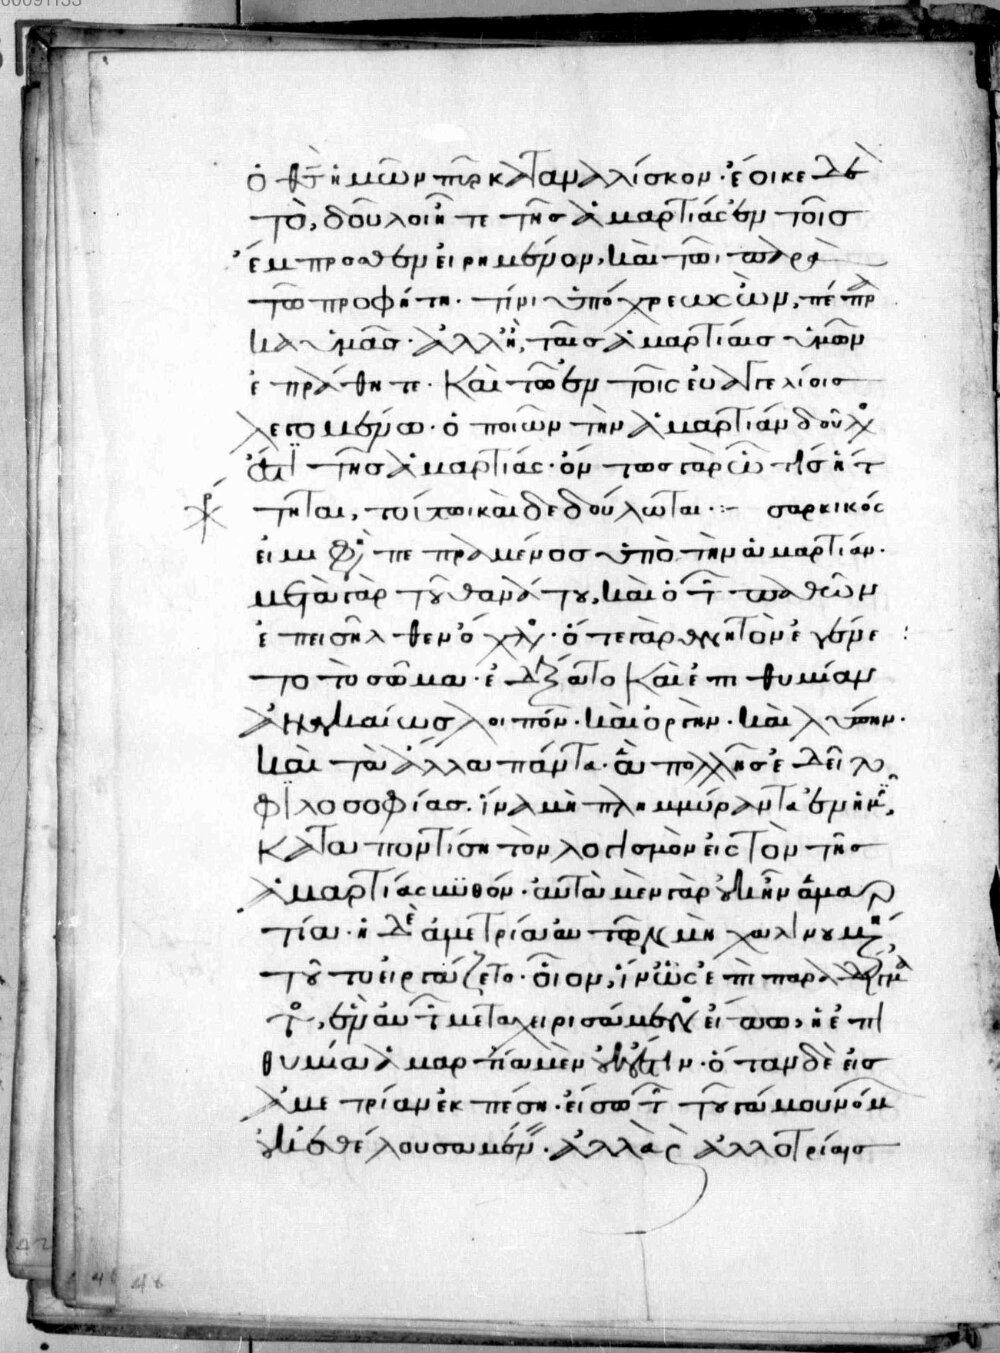 ὁ θ̅ς̅ ἡμῶν πῦρ καταναλίσκον· ἔοικε δὲ
τὸ, δοῦλοι ἦτε τῆς ἁμαρτίας ἐν τοῖς
ἔμπροσθεν εἰρημένον, καὶ τῶι παρὰ
τῶ προφήτη· τίνι ὑπόχρεως ὢν, πέπρα
κα ὑμᾶς· ἀλλ' ἢ, ταῖς ἁμαρτίαις ὑμῶν
ἐπράθητε· καὶ τῶ ἐν τοῖς εὐαγγελίοις
λεγομένω· ὁ ποιῶν τὴν ἁμαρτίαν δοῦλός
ἐστι τῆς ἁμαρτίας· ὅν τως γὰρ ὧ τίς ἥτ
τηται, τούτωι καὶ δεδούλωται·:- σαρκικός
εἰμι πεπραμένος ὑπὸ τὴν ἁμαρτίαν·
μετὰ γὰρ τοῦ θανάτου, καὶ ὁ τῶν παθῶν
ἐπεισῆλθεν ὄχλος· ὅτε γὰρ θνητὸν ἐγένε
το τὸ σῶμα· ἐδέξατο καὶ ἐπιθυμίαν
ἀναγκαίως λοιπόν· καὶ ὀργὴν· καὶ λύπην·
καὶ τὰ ἄλλα πάντα· ἃ πολλῆς ἐδεῖτο
φιλοσοφίας· ἵνα μὴ πλημμύραντα ἐν ἡμῖν,
καταποντίση τὸν λογισμὸν εἰς τὸν τῆς
ἁμαρτίας βυθόν· αὐτὰ μὲν γὰρ οὐκ ἦν ἁμαρ
τία· ἡ δὲ ἀμετρία αὐτῶν μὴ χαλινουμένη
τοῦτο εἰργάζετο· οἷον, ἵν' ὡς ἐπὶ παραδείγμα
τος, ἐν αὐτῶν μεταχειρισάμενος εἴπω, ἡ ἐπι
θυμία ἁμαρτία μὲν οὐκ ἔστιν· ὅταν δὲ εἰς
ἀμετρίαν ἐκπέση· εἴσω τῶν τοῦ γάμου νόμων
οὐκ ἐθέλουσα μένειν· ἀλλὰ καὶ ἀλλοτρίαις